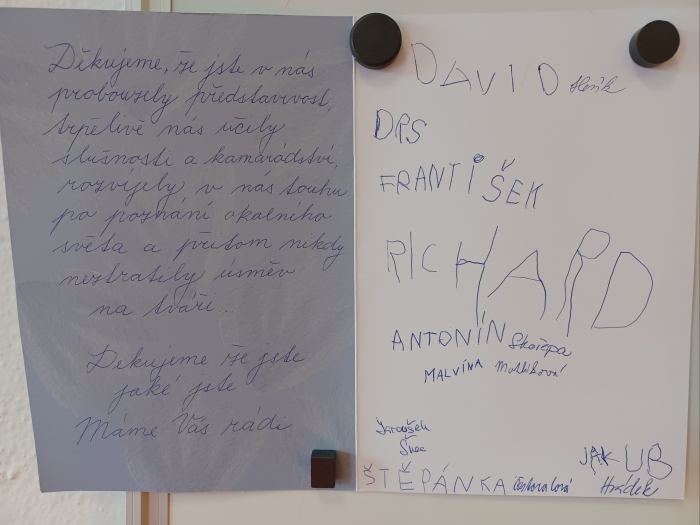 Děkujeme, že jste v nás
probouzely představivost,
trpělivě nás učily
slušnosti a kamarádství,
rozvíjely v nás touhu
po poznání okolního
světa a přitom nikdy
neztratily úsměv
na tváři..
Děkujeme že jste
jaké jste
Máme Vás rádi
DAVID
DRS
FRANTIŠEK
RICHARD
ANTONÍN Skořepa
MALVÍNA
Jaroušek
ŠTĚPÁNKA
JAKUB
Hrádek